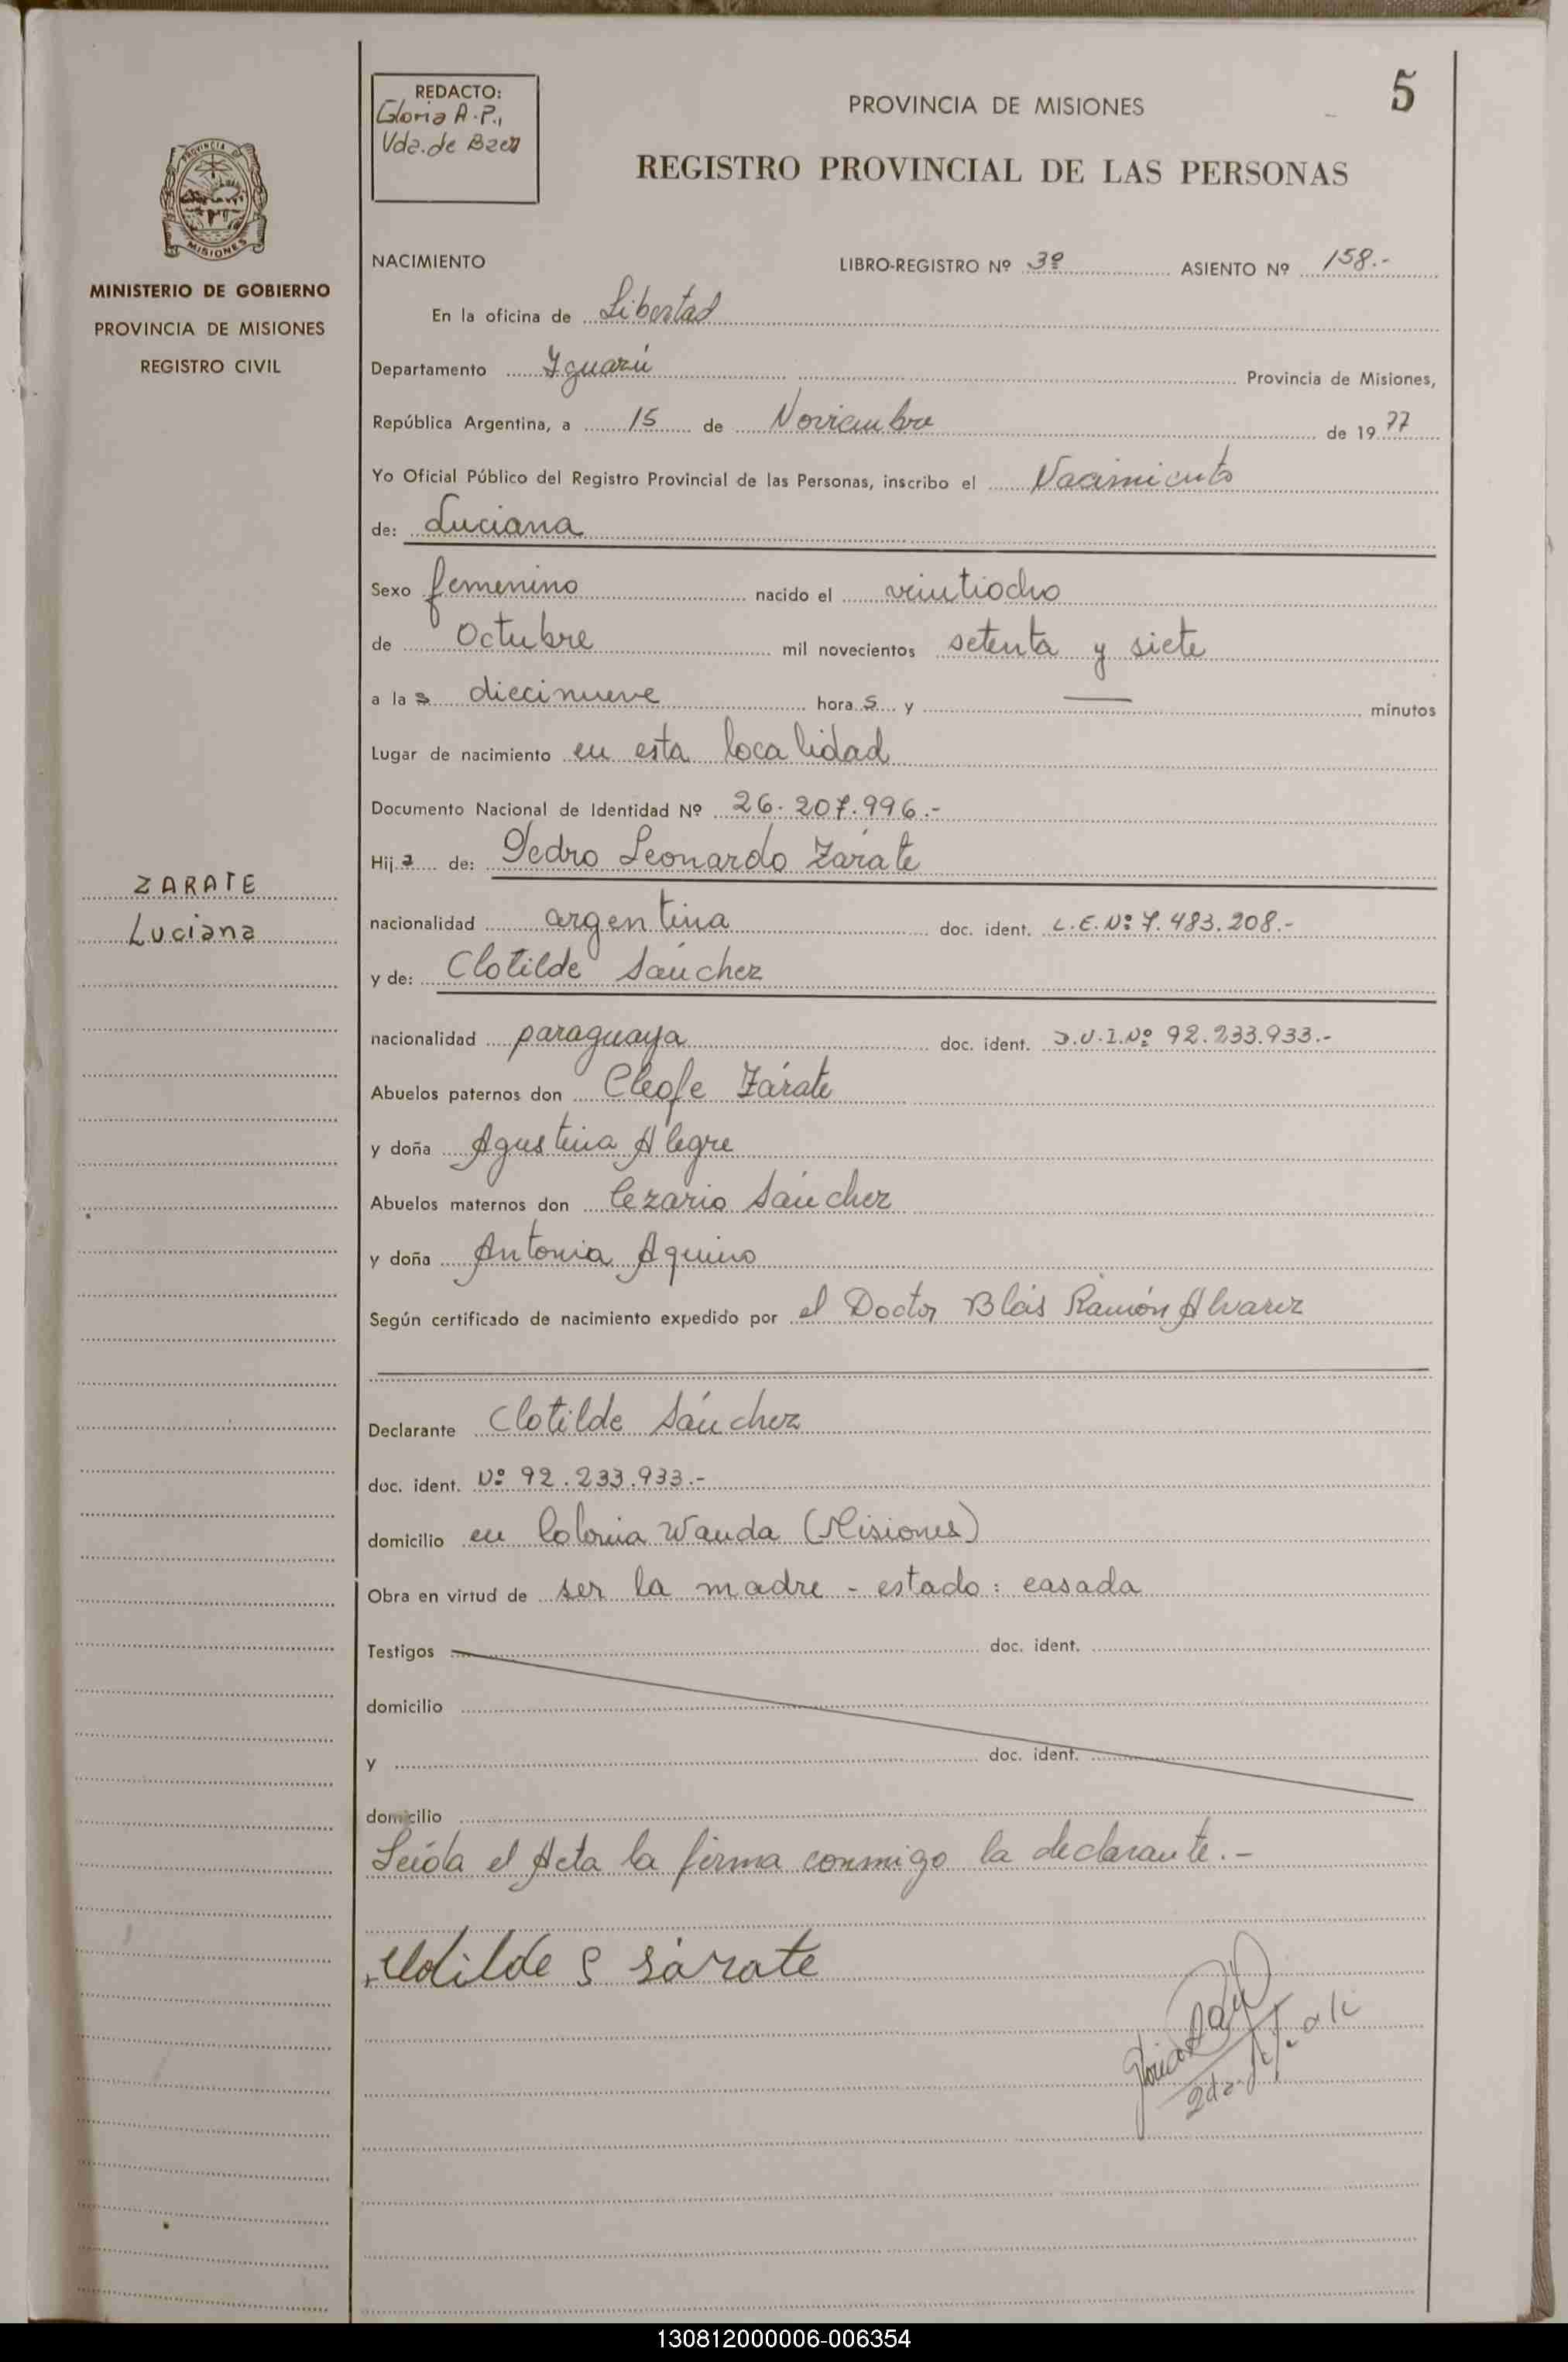 REDACTO:
Gloria A. P.
Vda. de Baez
PROVINCIA DE MISIONES
5
REGISTRO PROVINCIAL DE LAS PERSONAS
PROVINCIA DE
MISIONES
MINISTERIO DE GOBIERNO
PROVINCIA DE MISIONES
REGISTRO CIVIL
NACIMIENTO LIBRO-REGISTRO Nº 3º ASIENTO Nº 158.-
En la oficina de Libertad
Departamento Iguazú Provincia de Misiones,
República Argentina, a 15 de Noviembre de 1977
Yo Oficial Público del Registro Provincial de las Personas, inscribo el Nacimiento
de: Luciana
Sexo femenino nacido el veintiocho
de Octubre mil novecientos setenta y siete
a las diecinueve horas y — minutos
Lugar de nacimiento en esta localidad
Documento Nacional de Identidad Nº 26.207.996.-
Hija de: Pedro Leonardo Zárate
ZARATE
Luciana
nacionalidad argentina doc. ident. L.E.Nº 7.483.208.-
y de: Clotilde Sánchez
nacionalidad paraguaya doc. ident. D.U.I.Nº 92.233.933.-
Abuelos paternos don Cleofe Zárate
y doña Agustina Alegre
Abuelos maternos don Cezario Sánchez
y doña Antonia Aquino
Según certificado de nacimiento expedido por el Doctor Blás Ramón Alvarez
Declarante Clotilde Sánchez
doc. ident. Nº 92.233.933.-
domicilio en Colonia Wanda (Misiones)
Obra en virtud de ser la madre - estado: casada
Testigos doc. ident.
domicilio
y doc. ident.
domicilio
Leída el Acta la firma conmigo la declarante.-
Clotilde S sárate
130812000006-006354